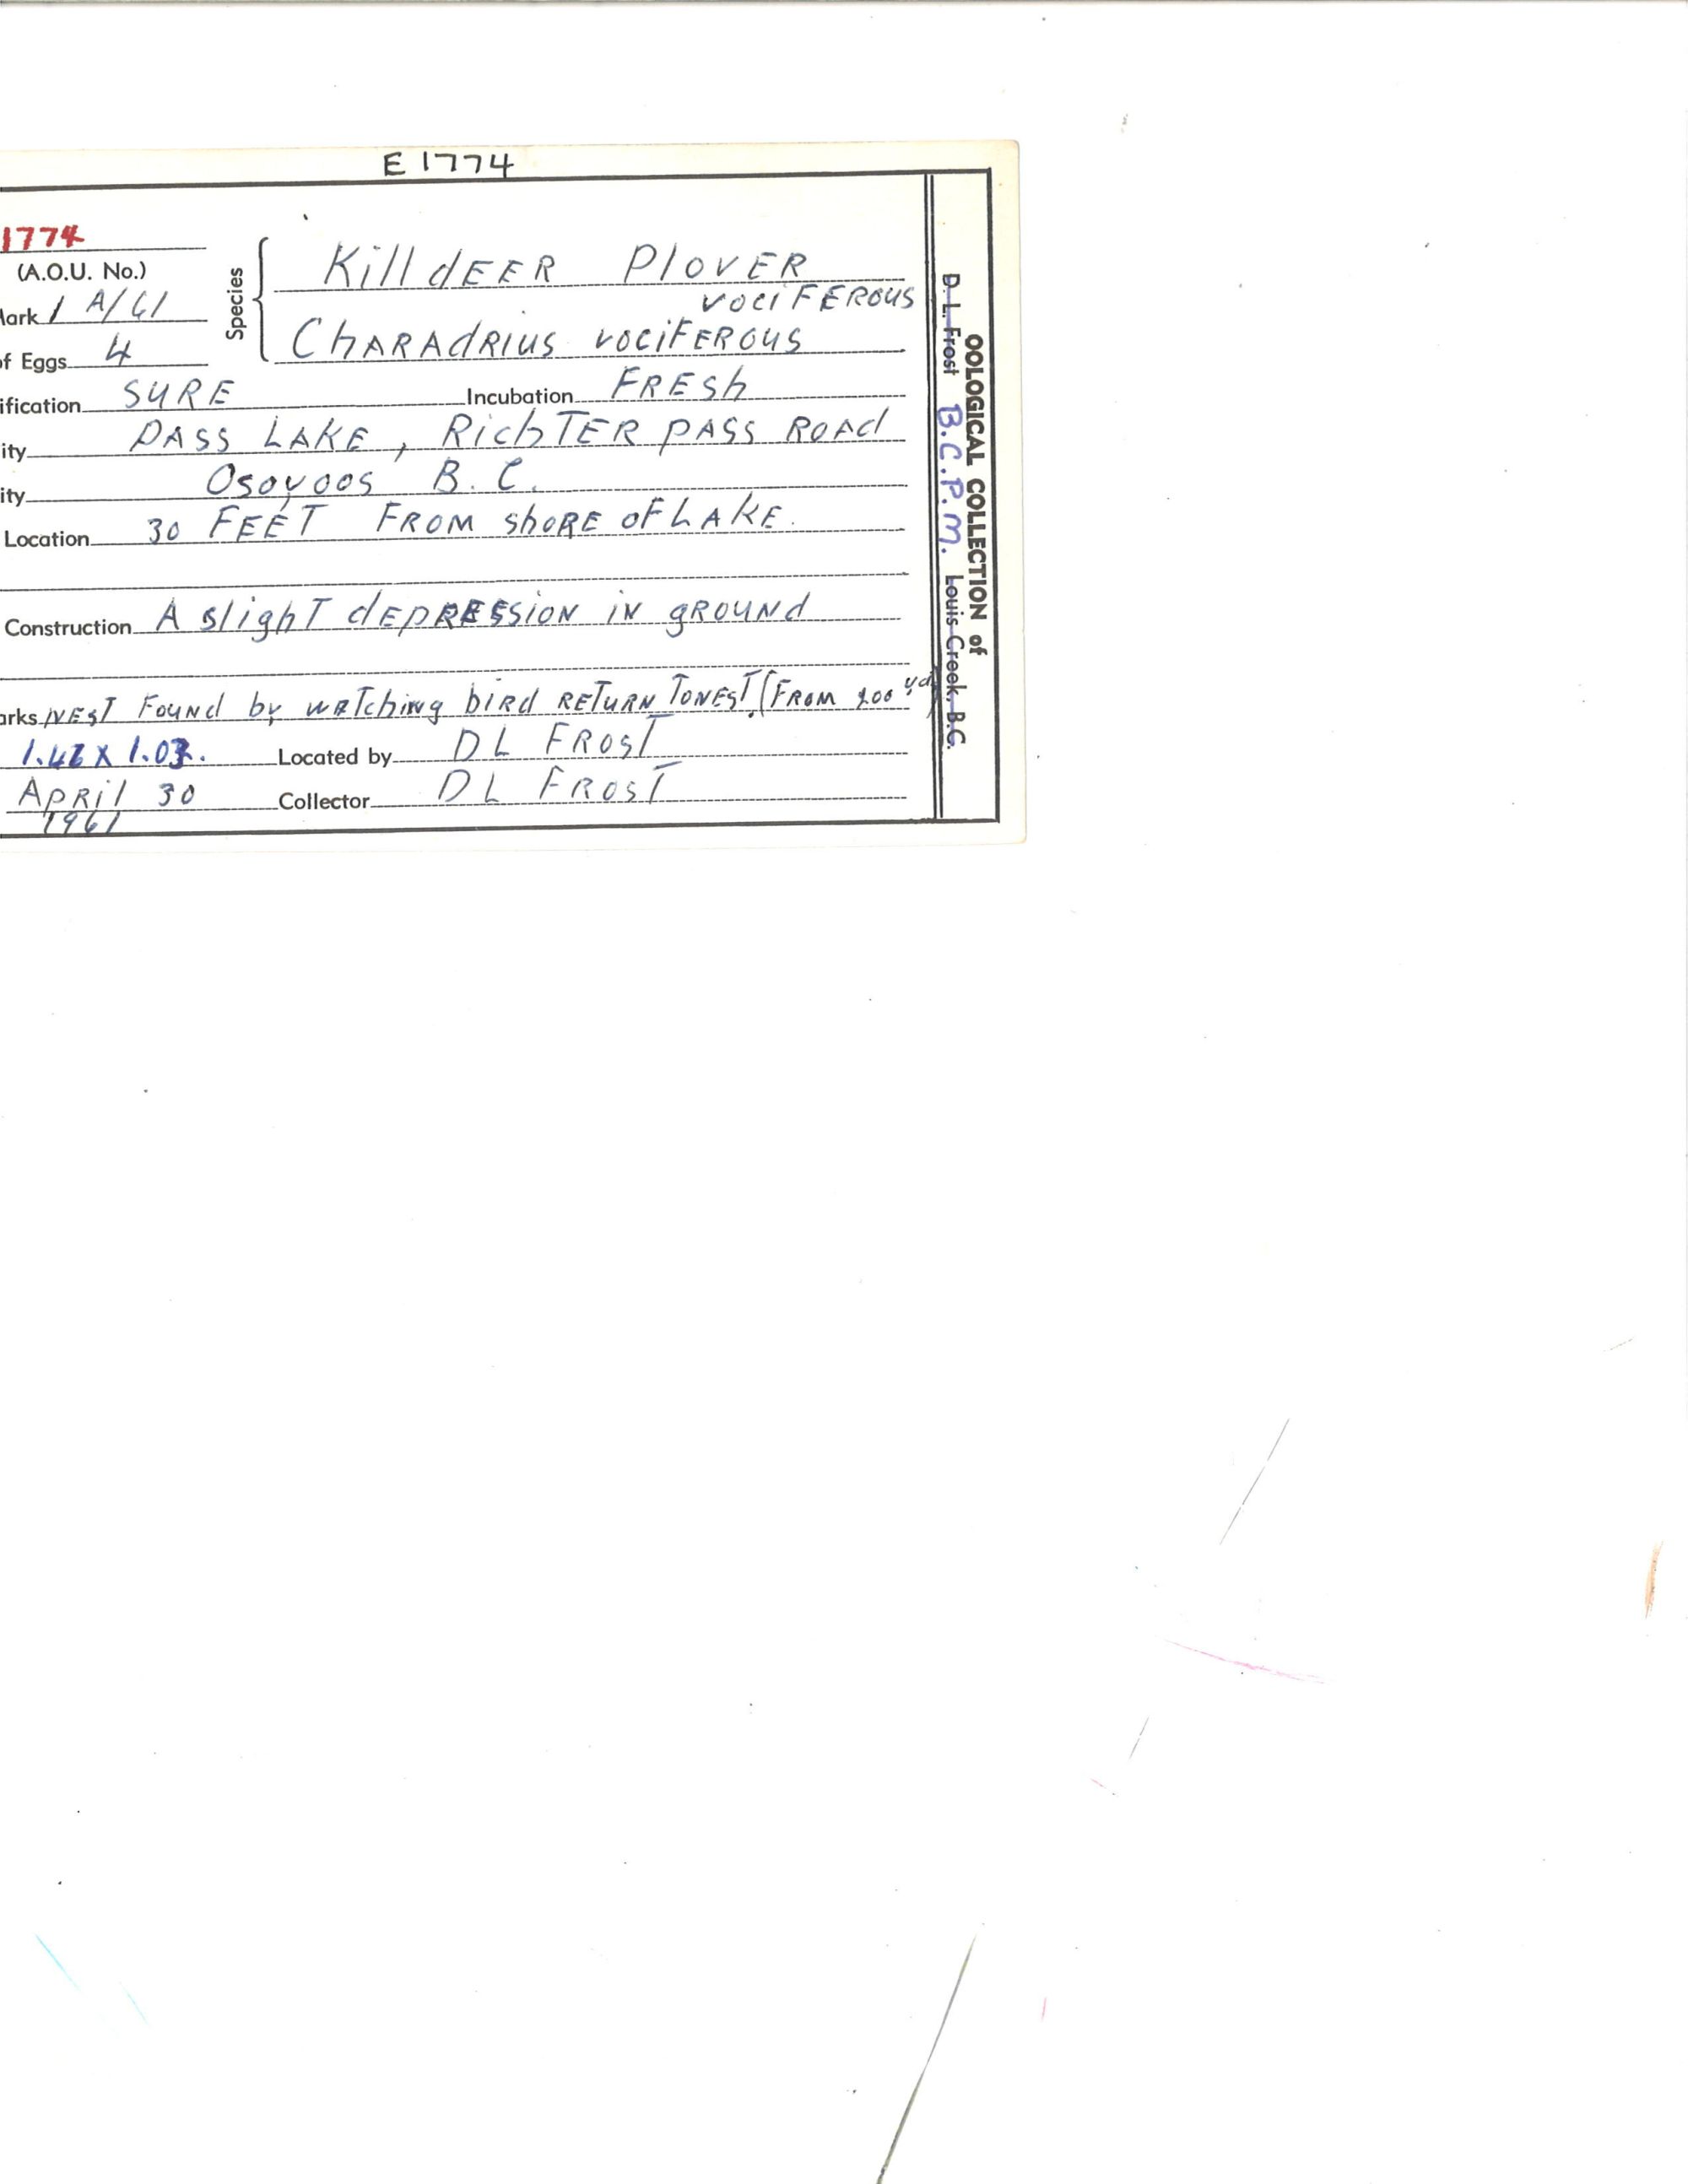 E 1774
1774
(A.O.U. No.)
Species
KilldEER PlovER
vociFERous
ark 1 A/61
ChARAdRius vociFERous
f Eggs 4
ification SURE Incubation FRESh
ity PASS LAKE, RichTER pASS ROAd
ity Osoyoos B.C.
Location 30 FEET FROM shoRE oF LAKE.
Construction A slighT dEpRESSioN iN gROUNd
arks NEST Found by wATching biRd RETURN To NEST. (FROM 200 yd)
Located by DL FROST
ApRil 30 Collector DL FROST
1961
OOLOGICAL COLLECTION of
D. L. Frost B.C.P.M. Louis Creek, B.C.